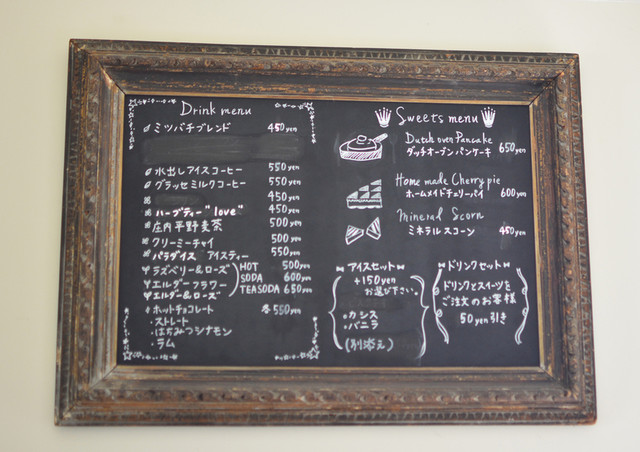 Drink menu
ミツバチブレンド 450yen
水出しアイスコーヒー 550yen
グラッセミルクコーヒー 550yen
450yen
ハーブティー "love" 450yen
庄内平野麦茶 500yen
クリーミーチャイ 500yen
パラダイス アイスティー 550yen
ラズベリー&ローズ HOT 500yen
エルダーフラワー SODA 600yen
エルダー&ローズ TEASODA 650yen
ホットチョコレート 各550yen
・ストレート
・はちみつシナモン
・ラム
Sweets menu
Dutch oven Pancake
ダッチオーブンパンケーキ 650yen
Home made Cherry pie
ホームメイドチェリーパイ 600yen
Mineral Scorn
ミネラルスコーン 450yen
アイスセット
+150yen
お選び下さい。
・カシス
・バニラ
(別添え)
ドリンクセット
ドリンクとスイーツを
ご注文のお客様
50yen引き